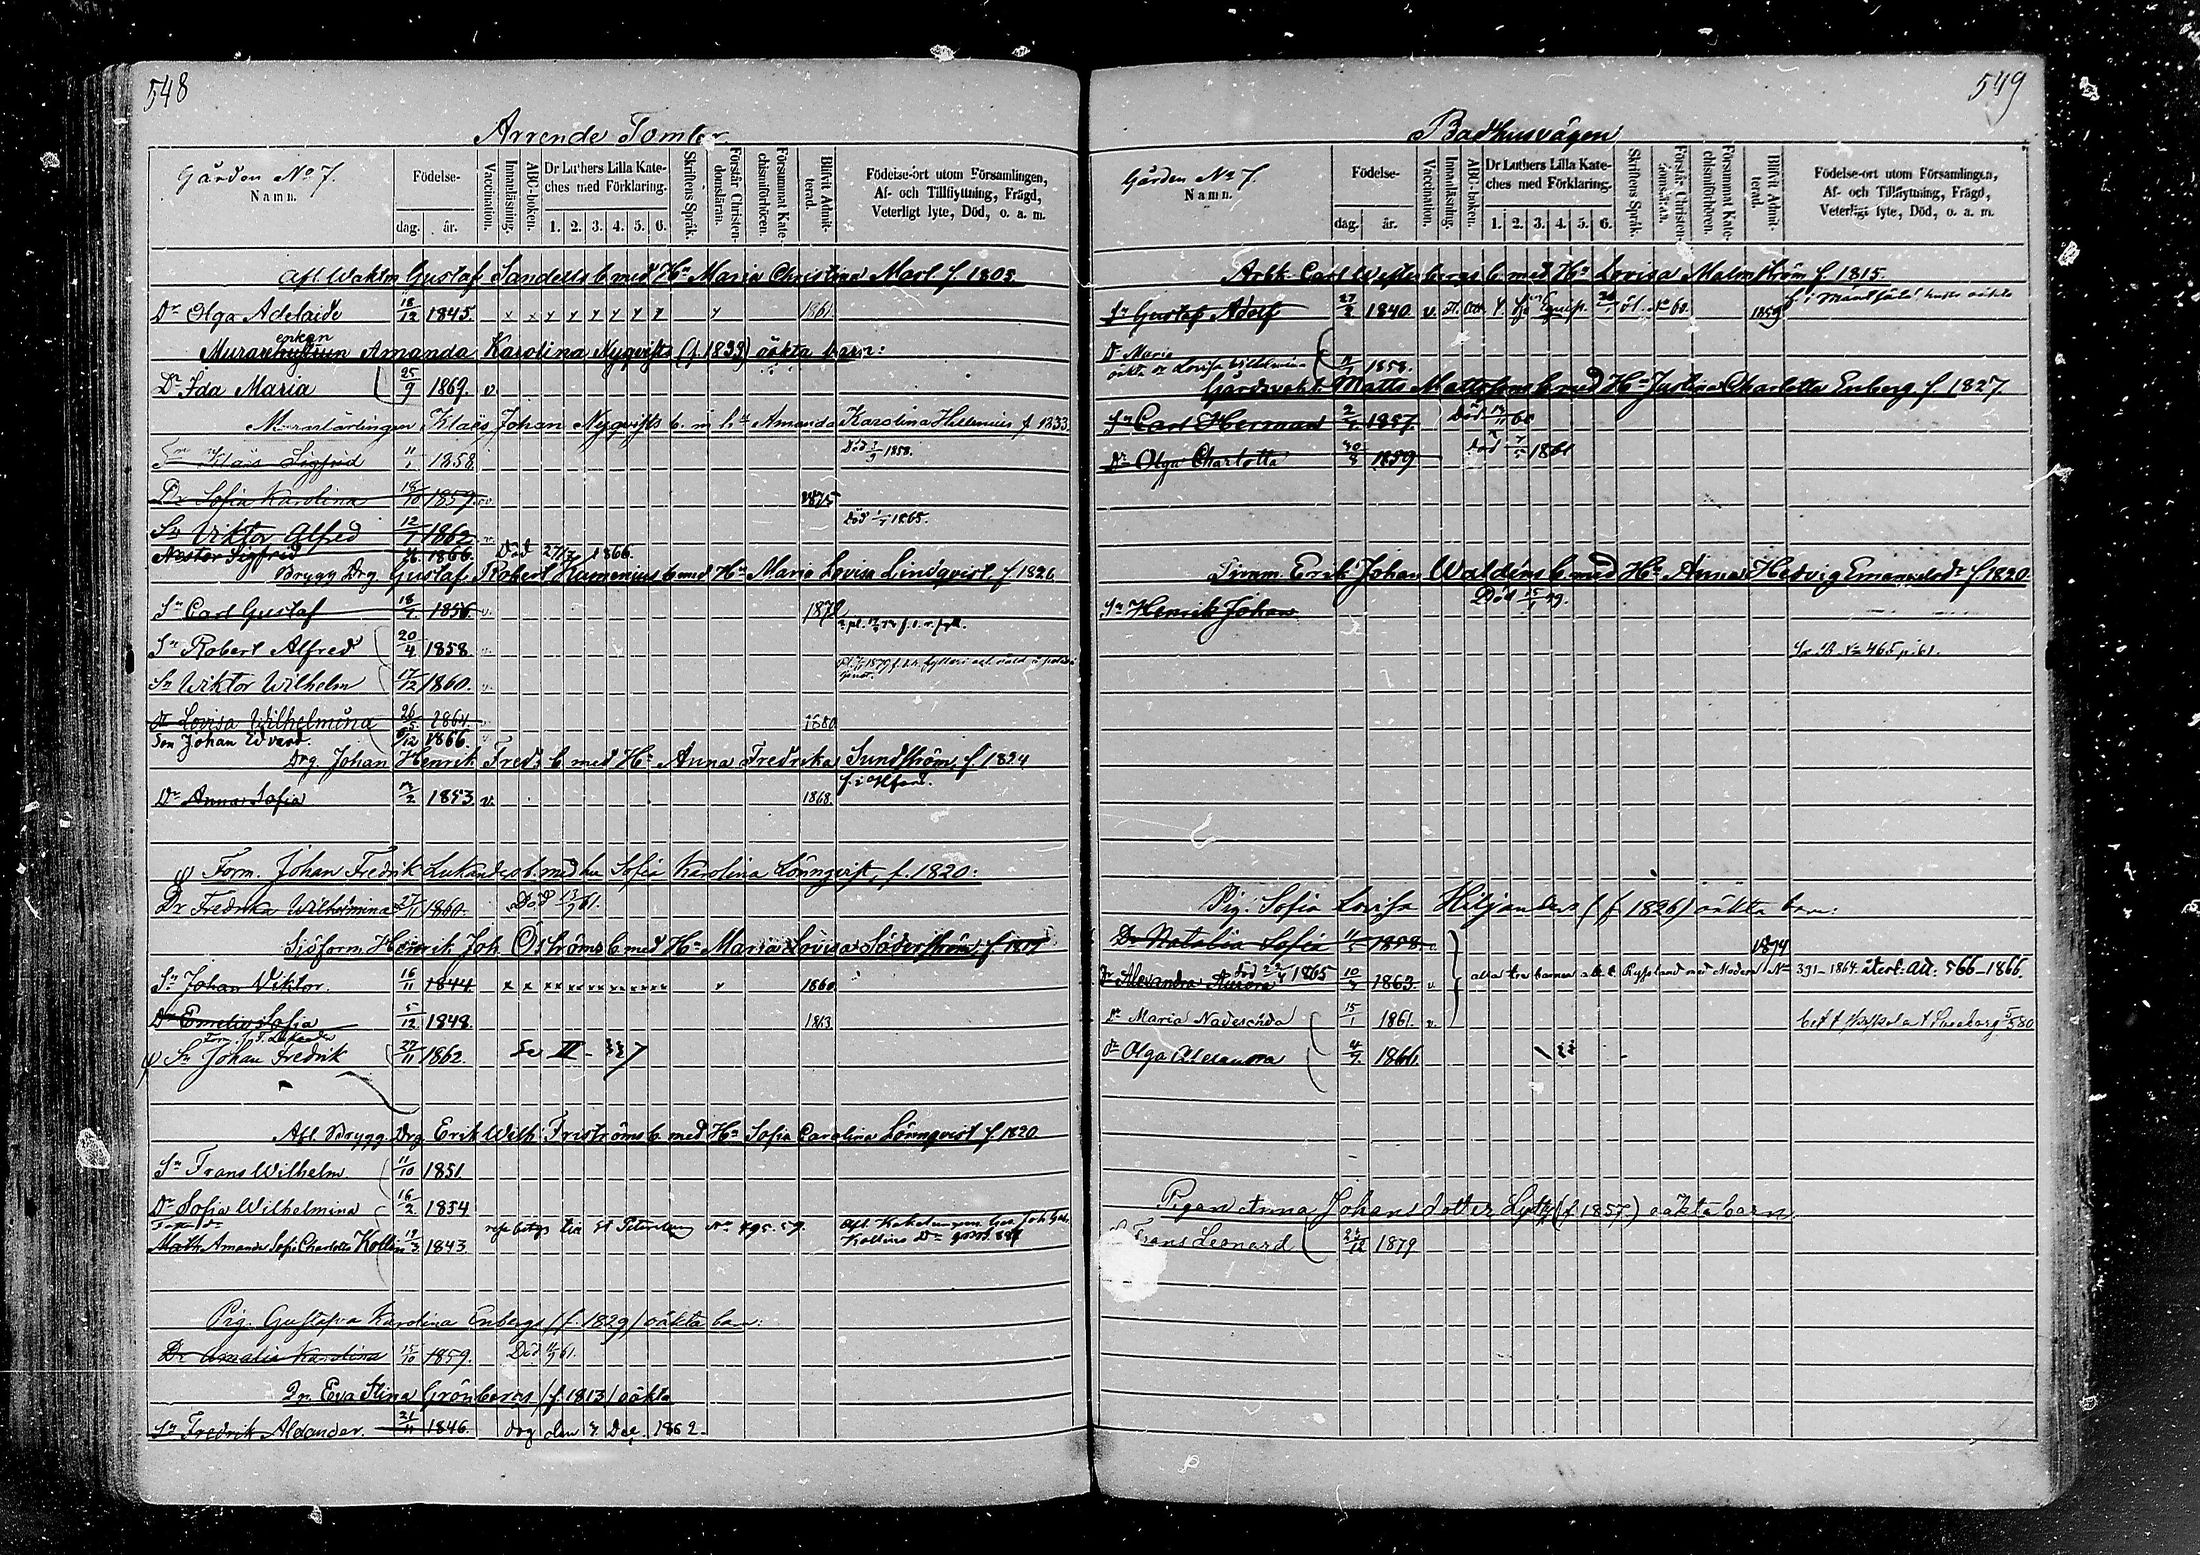 548
Arrende Tomter
Gården No 7.
Namn.
Födelse-
dag. år.
Vaccination.
Innanläsning.
ABC-boken.
Dr Luthers Lilla Kate-
ches med Förklaring.
1. 2. 3. 4. 5. 6.
Skriftens Språk.
Förstår Christen-
domsläran.
Försummat Kate-
chismiförhören.
Blifvit Admit-
terad.
Födelse-ort utom Församlingen,
Af- och Tillflyttning, Frägd,
Veterligt lyte, Död, o. a. m.
Afl. Waktm Gustaf Sandells b. med Hu Maria Christina Marl. f. 1805.
Dr Olga Adelaide 18/12 1845. 1861
enkan
Amanda Karolina Nyqvists (f. 1833) oäkta barn:
Dr Ida Maria 25/9 1869. v.
Klaës Johan Nyqvists b. m hu Amanda Karolina Hellenius f 1833
Sn Klaës Sigfrid 11/1 1858. Död 1858.
Dr Sofia Karolina 18/10 1859. v. 1875
Sn Viktor Alfred 12/1 1862. v. Död 1865.
Nestor Sigfrid 1866. Död 27/12 1866.
Brygg Drg Gustaf Robert Kumenius b. med Hu Maria Lovisa Lindqvist. f 1826
Sn Carl Gustaf 18/1 1856. v. 1872
Sn Robert Alfred 20/4 1858.
Sn Wiktor Wilhelm 17/12 1860. v.
Dr Lovisa Wilhelmina 26/5 1864. 1880
Son Johan Edvard. 1866.
Drg. Johan Henrik Freds b. med Hu Anna Fredrika Sundström, f 1824
Dr Anna Sofia 1853 v. 1868.
Form. Johan Fredrik Lukanders b. med hu Sofia Karolina Lönnqvist, f. 1820:
Dr Fredrika Wilhelmina 27/11 1860. Död 13/9 61.
Sjöform. Henrik Joh. Öströms b. med Hu Maria Lovisa Söderström, f. 1817
Sn Johan Viktor. 16/11 1844. 1860
Dr Emelie Sofia 5/12 1848. 1863
Sn Johan Fredrik 27/11 1862.
Afl. Brygg. Drg Erik Wilh. Friströms b. med Hu Sofia Carolina Lönnqvist f 1820.
Sn Frans Wilhelm. 11/10 1851.
Dr Sofia Wilhelmina 16/2 1854
Amanda Sofi Charlotta Kollin 19/3 1843 betyg till St Petersburg No 495. 59.
Pig. Gustafva Karolina Enbergs (f. 1829) oäkta barn:
Dr Amalia Karolina 15/10 1859. Död 61.
Eva Stina Grönbergs (f. 1813) oäkta
Sn Fredrik Alexander. 21/11 1846. drg den 7 Dec. 1862.
549
Badhusvägen
Gården No 7.
Namn.
Födelse-
dag. år.
Vaccination.
Innanläsning.
ABC-boken.
Dr Luthers Lilla Kate-
ches med Förklaring.
1. 2. 3. 4. 5. 6.
Skriftens Språk.
Förstår Christen-
domsläran.
Försummat Kate-
chismiförhören.
Blifvit Admit-
terad.
Födelse-ort utom Församlingen,
Af- och Tillflyttning, Frägd,
Veterligt lyte, Död, o. a. m.
Arbk. Carl Westerbergs b. med Hu Lovisa Malmström f. 1815.
Sn Gustaf Adolf 27/2 1840. v. 1859
Dr Maria
oäkta Dr Lovisa Wilhelmina 1858.
Gårdsvakt. Matts Mattssons b. med Hu Justina Charlotta Enberg f. 1827.
Sn Carl Herman 1857. Död 60
Dr Olga Charlotta 30/8 1859 Död 1861
Erik Johan Waldéns b. med Hu Anna Hedvig Emansdotr f 1820
Sn Henrik Johan Död 15/1 59.
No 465 p. 61.
Pig. Sofia Lovisa Hiljanders (f. 1826) oäkta barn:
Dr Natalia Sofia 1858. v. 1874
Dr Alexandra Aurora död 1865 10/7 1863. v. alla tre barnen Ryssland med Modern No 391-1864. återk. att: 566-1866.
Dr Maria Nadeschda 15/1 1861. v.
Dr Olga Alexandra 4/7 1866.
Pigan Anna Johansdotter Lytz (f. 1857.) oäkta barn
Frans Leonard 1879